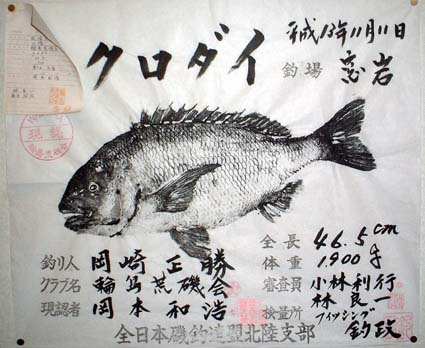 平成13年11月11日
クロダイ
釣場 窓岩
現認
全長 46.5cm
体重 1,900g
釣り人 岡崎正勝
クラブ名 輪島荒磯会
審査員 小林利行
林良一
現認者 岡本和浩
検量所 フィッシング
釣政
全日本磯釣連盟北陸支部